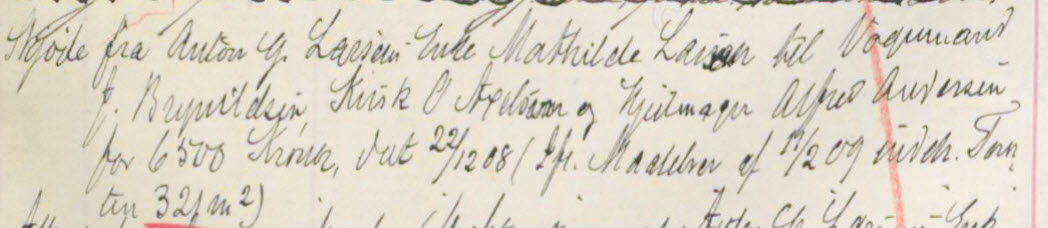 Skjøde fra Anton G. Larsens Enke Mathilde Larsen til Vognmand
J. Brynildsen, Kusk O Axelsen og Hjulmager Alfred Andersen
for 6500 Kroner, dat 22/12 08 (Ifl. Maalebrev af 11/2 09 indeh. Tom,
ten 321 m²)